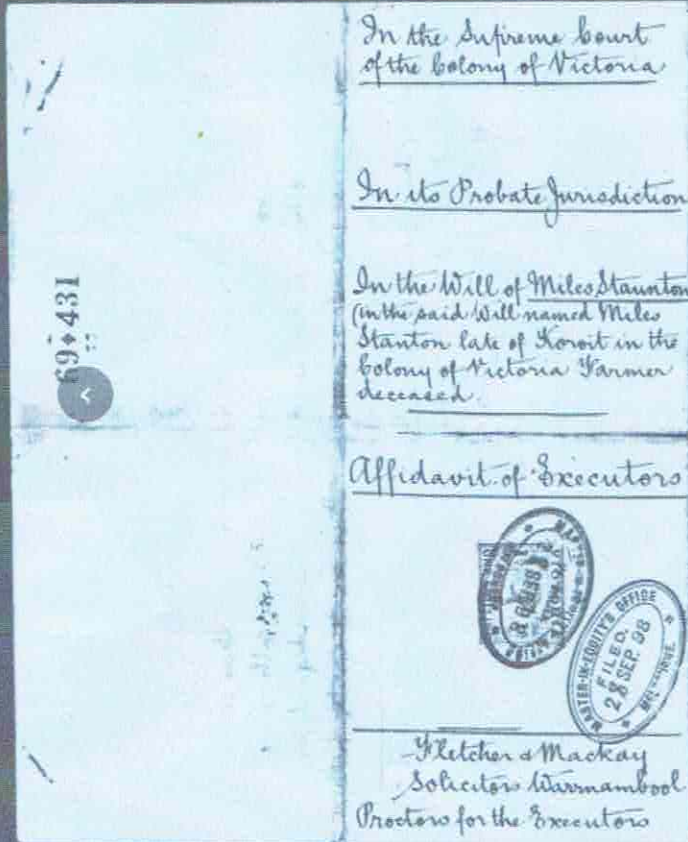 In the Supreme Court
of the Colony of Victoria
In its Probate Jurisdiction
In the Will of Miles Staunton
(in the said Will named Miles
Stanton late of Koroit in the
Colony of Victoria Farmer
deceased.
Affidavit of Executors
MASTER-IN-EQUITY'S OFFICE
FILED.
28 SEP. 98
Fletcher & Mackay
Solicitors Warrnambool
Proctors for the Executors
69 431